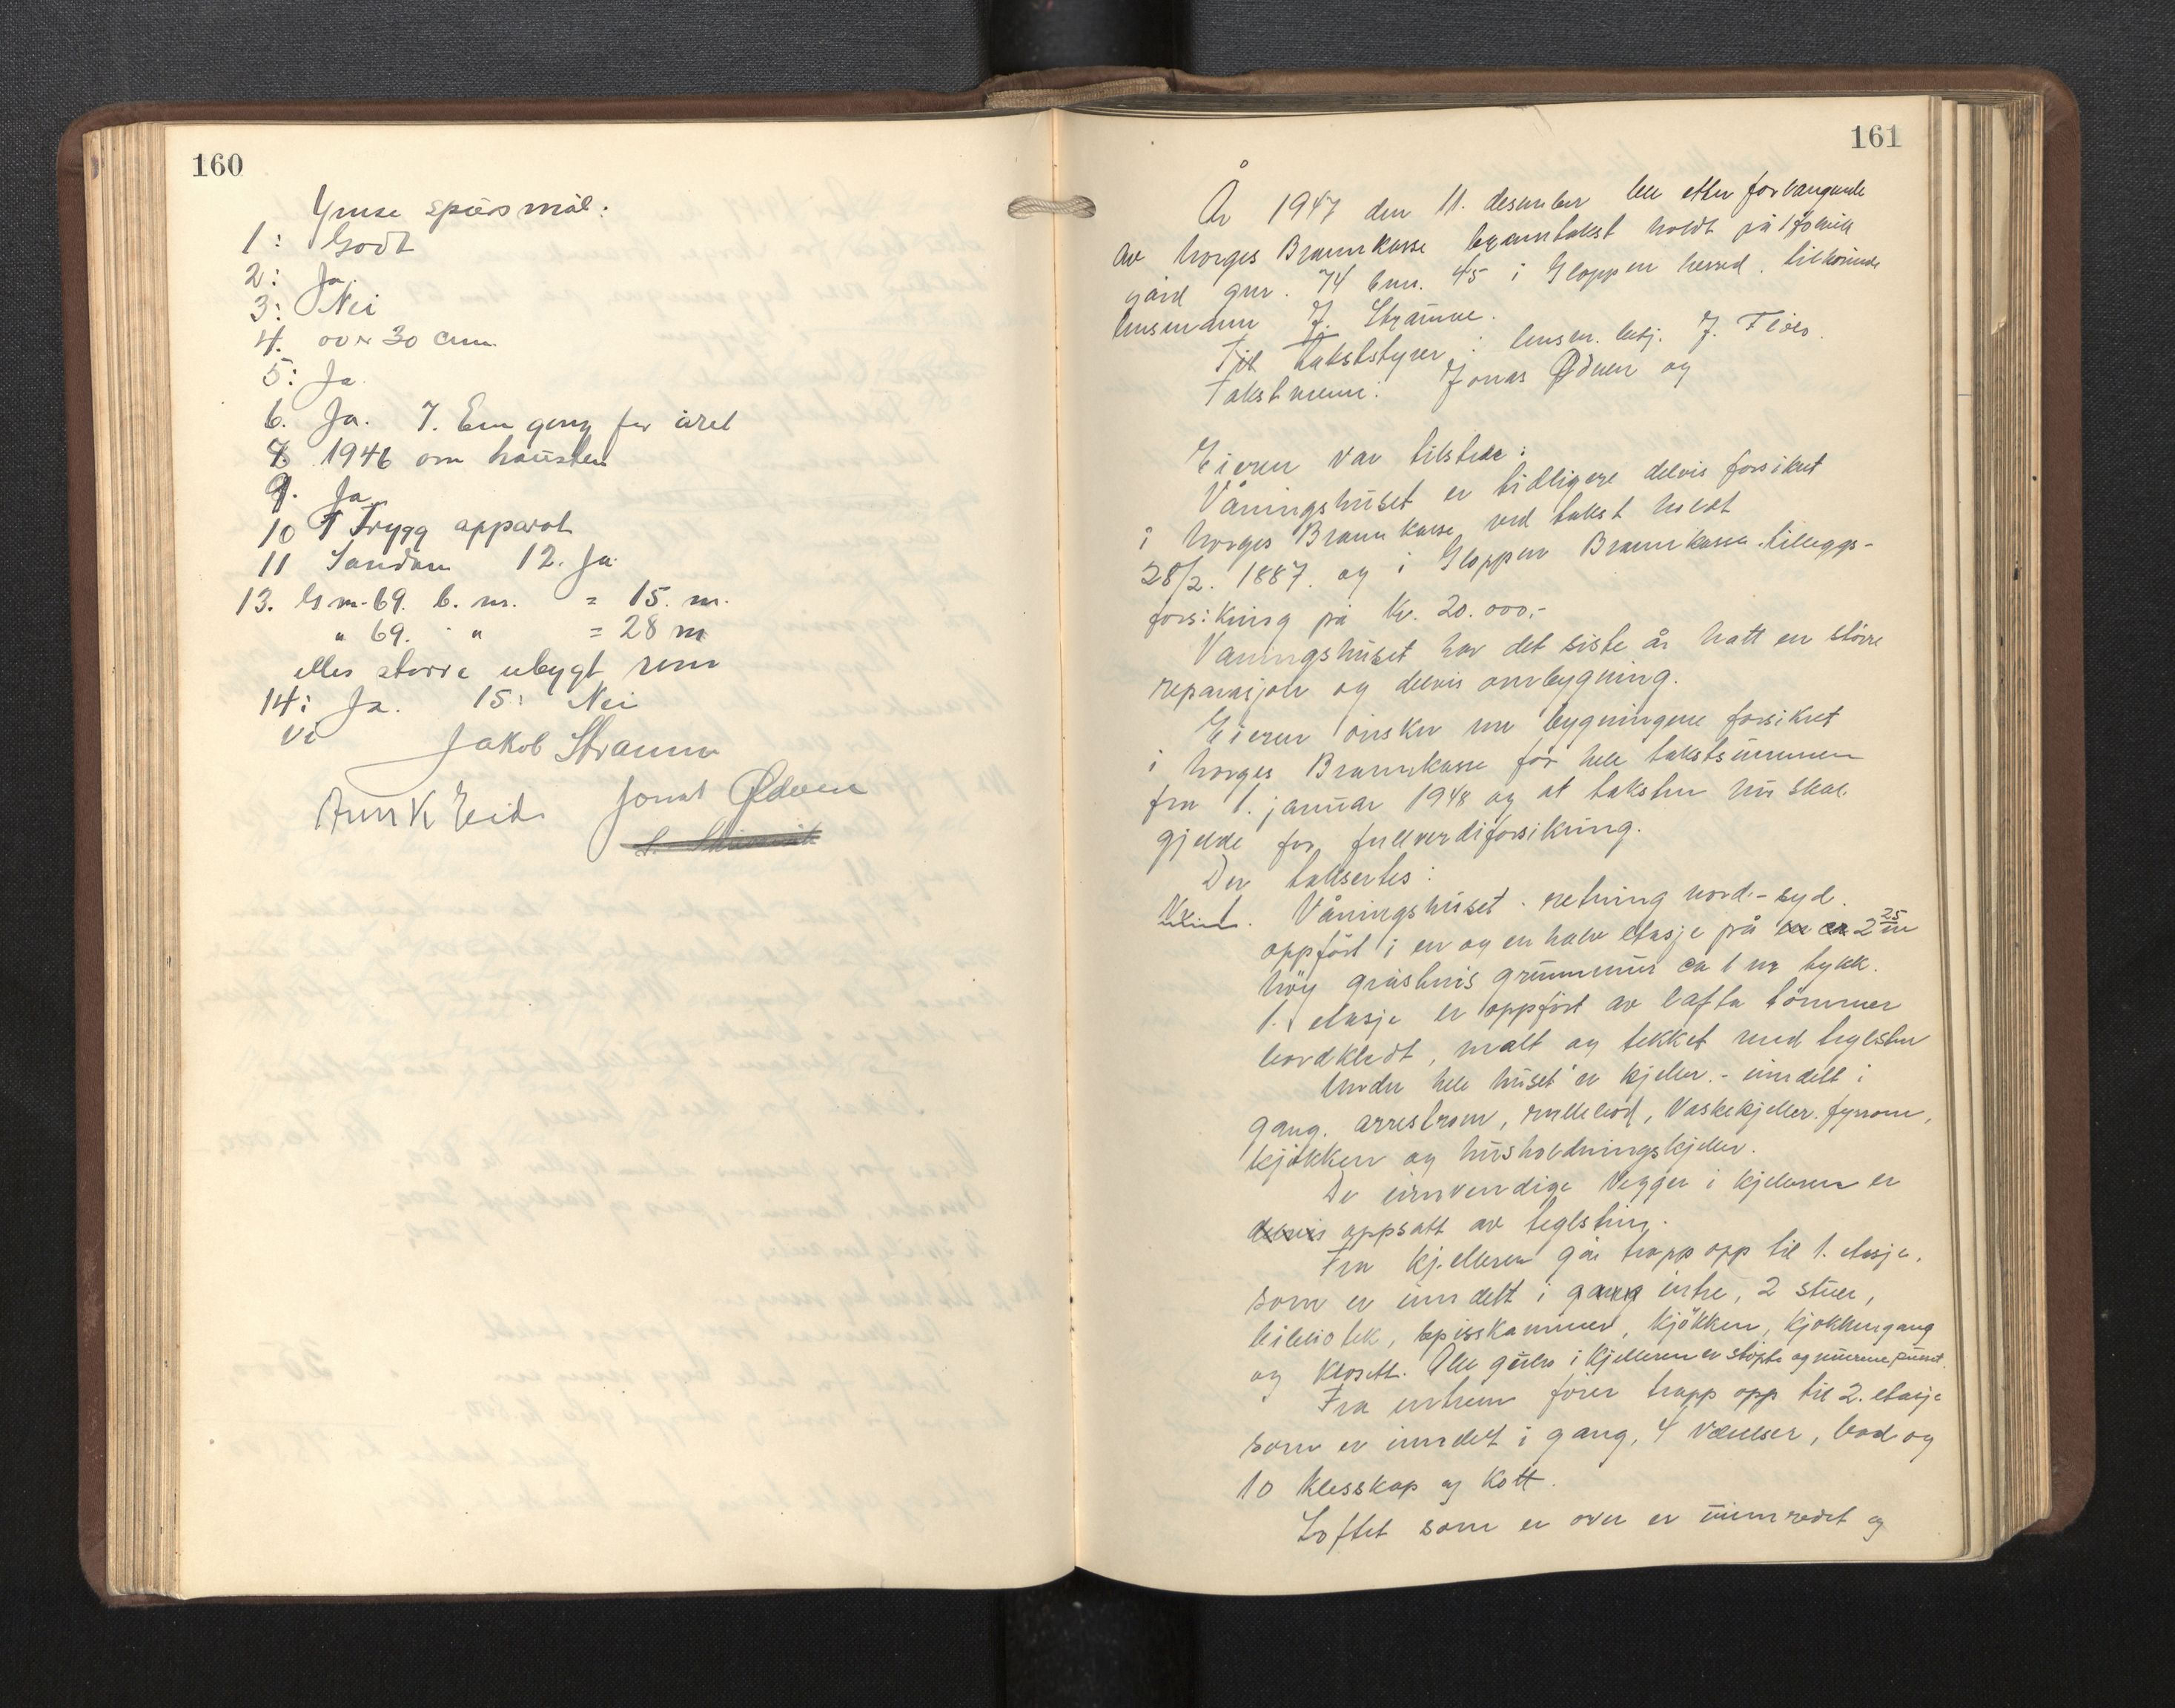 160
Ymse spørsmål:
1: Godt
2: Ja.
3: Nei
4. over 30 cm
5: Ja
6. Ja. 7. Ein gong for året
8. 1946 om hausten
9. Ja
10 1 Trygg apparat
11 Sandane 12. Ja
13. G.nr. 69. b. nr. = 15. m.
" 69. " = 28 m
elles større ubygt rom
14: Ja. 15: Nei
Vi
Jakob Straume
Jonas Ødven
161
År 1947 den 11. desember ble etter forlangende
av Norges Brannkasse branntakst holdt på
gård gnr. 74 bnr. 45 i Gloppen herred. tilhørende
lensmann J. Straume.
Til takststyrer: lensm. betj. J. Flølo.
Takstmenn: Jonas Ødven og
Eieren var tilstede:
Våningshuset er tidligere delvis forsikret
i Norges Brannkasse ved takst holdt
28/2. 1887. og i Gloppen Brannkasse tilleggs-
forsikring på kr. 20.000,-
Våningshuset har det siste år hatt en større
reparasjon og delvis ombygning.
Eieren ønsker nu bygningene forsikret
i Norges Brannkasse for hele takstsummen
fra 1. januar 1948 og at taksten nu skal
gjelde for fullverdiforsikring.
Der takseres:
No. 1. Våningshuset. retning nord-syd.
oppført i en og en halv etasje på 2 25 m
høy gråstens grunnmur ca 1 m tykk.
1. etasje er oppført av lafta tømmer
bordkledt, malt og tekket med teglsten
Under hele huset er kjeller. - inndelt i
gang. arrestrom, rullebod, vaskekjeller. fyrrom,
kjøkken og husholdningskjeller.
De innvendige vegger i kjelleren er
delvis oppsatt av teglsten.
Fra kjelleren går trapp opp til 1. etasje.
som er inndelt i gang entre, 2 stuer,
bibliotek, spisskammer, kjøkken, kjøkkengang
og klosett. Alle gulv i kjelleren er støpte og murene pusset.
Fra entreen fører trapp opp til 2. etasje
som er inndelt i gang, 4 værelser, bad og
10 klesskap og kott.
Loftet som er over er uinnredet og